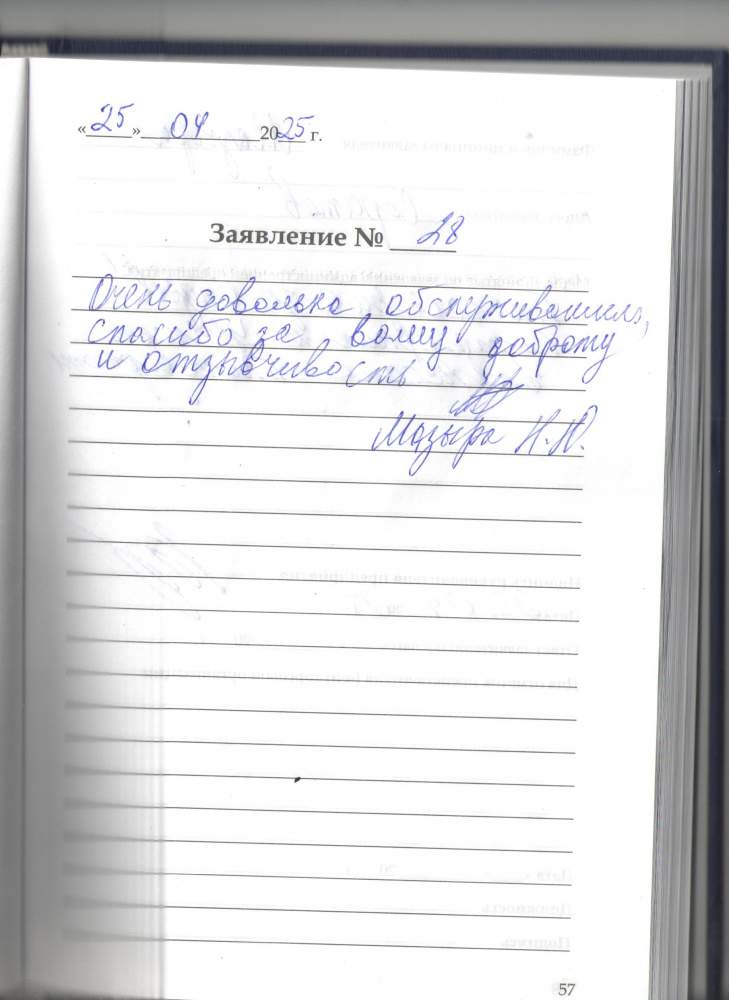 «25» 04 2025 г.
Заявление № 28
Очень довольна обслуживанием,
спасибо за вашу доброту
и отзывчивость
Мазыра Н.Ю.
57